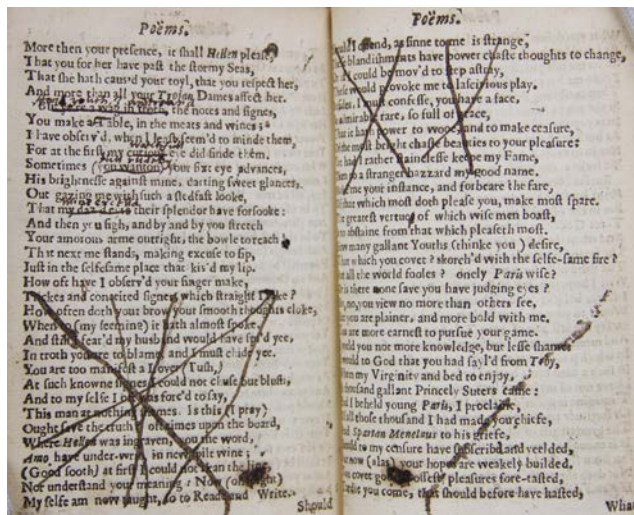 Poëms.
More then your presence, it shall Hellen please,
That you for her have past the stormy Seas,
That she hath caus'd your toyl, that you respect her,
And more than all your Trojan Dames affect her.
the notes and signes,
You make a Table, in the meats and wines;
I have observ'd, when I least seem'd to minde them,
For at the first my curious eye did finde them.
Sometimes (you wanton) your fixt eye advances,
His brightnesse against mine, darting sweet glances,
Out gazing me with such a stedfast looke,
That my their splendor have forsooke:
And then you sigh, and by and by you stretch
Your amorous arme outright, the bowle to reach
That next me stands, making excuse to sip,
Just in the selfesame place that kis'd my lip.
How oft have I observ'd your finger make,
Trickes and conceited signes, which straight I take?
How often doth your brow your smooth thoughts cloke,
When (to my seeming) it hath almost spoke,
And still I fear'd my husband would have spi'd yee,
In troth you are to blame, and I must chide yee.
You are too manifest a Lover (Tush,)
At such knowne signes I could not chuse but blush,
And to my selfe I oft was forc'd to say,
This man at nothing shames. Is this (I pray)
Ought save the truth? oftimes upon the board,
Where Hellen was ingraven, you the word,
Amo have under-writ in new spilt wine;
(Good sooth) at first I could not skan the line,
Not understand your meaning: Now (oh spight)
My selfe am now taught, so to Reade and Write.
Should
Poëms.
I offend, as sinne to me is strange,
blandishments have power chaste thoughts to change,
if I could be mov'd to step astray,
would provoke me to lascivious play.
I must confesse, you have a face,
admirable, rare, so full of grace,
That it hath power to wooe, and to make ceasure,
the most bright chaste beauties to your pleasure:
had rather stainlesse keepe my Fame,
to a stranger hazzard my good name.
me your instance, and forbeare the fare,
that which most doth please you, make most spare.
greatest vertue of which wise men boast,
abstaine from that which pleaseth most.
many gallant Youths (thinke you) desire,
which you covet? skorch'd with the selfe-same fire?
all the world fooles? onely Paris wise?
is there none save you have judging eyes?
no, you view no more than others see,
you are plainer, and more bold with me.
are more earnest to pursue your game.
you not more knowledge, but lesse shame
would to God that you had sayl'd from Troy,
my Virginity and bed to enjoy,
thousand gallant Princely Suters came:
I beheld young Paris, I proclaime,
all those thousand I had made you chiefe,
Spartan Menelaus to his griefe,
to my censure have subscrib'd and yeelded,
now (alas) your hopes are weakely builded.
covet goods possest, pleasures fore-tasted,
you come, that should before have hasted,
What